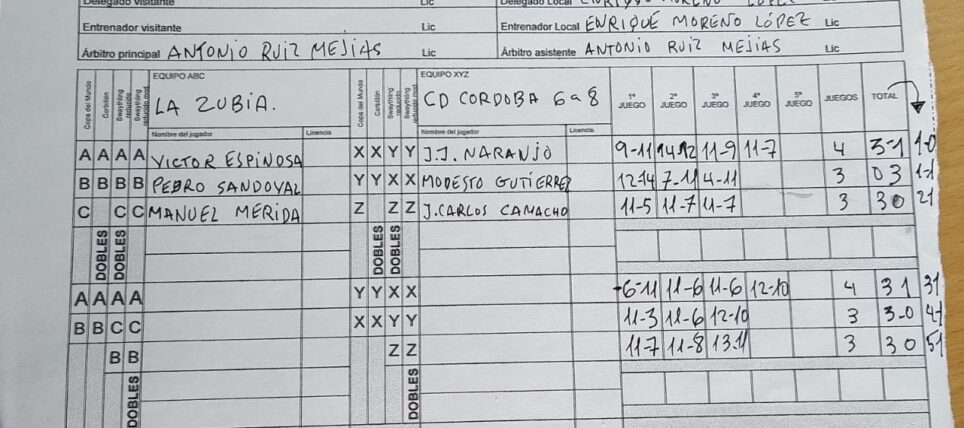 Delegado visitante Lic Delegado Local ENRIQUE MORENO LOPEZ Lic
Entrenador visitante Lic Entrenador Local ENRIQUE MORENO LÓPEZ Lic
Árbitro principal ANTONIO RUIZ MEJIAS Lic Árbitro asistente ANTONIO RUIZ MEJIAS Lic
Copa del Mundo Corbillón Swaythling reducido Swaythling reducido mod. EQUIPO ABC Copa del Mundo Corbillón Swaythling reducido Swaythling reducido mod. EQUIPO XYZ
LA ZUBIA. CD CORDOBA 6a8 1º JUEGO 2º JUEGO 3º JUEGO 4º JUEGO 5º JUEGO JUEGOS TOTAL
Nombre del jugador Licencia Nombre del jugador Licencia
A A A A VICTOR ESPINOSA X X Y Y J.J. NARANJO 9-11 14-12 11-9 11-7 4 3-1 1-0
B B B B PEDRO SANDOVAL Y Y X X MODESTO GUTIERREZ 12-14 7-11 4-11 3 0 3 1-1
C C C MANUEL MERIDA Z Z Z J.CARLOS CAMACHO 11-5 11-7 11-7 3 3 0 21
DOBLES DOBLES DOBLES DOBLES
A A A A Y Y X X 6-11 11-6 11-6 12-10 4 3 1 31
B B C C X X Y Y 11-3 11-6 12-10 3 3-0 4-1
B B Z Z 11-7 11-8 13-11 3 3 0 51
DOBLES DOBLES